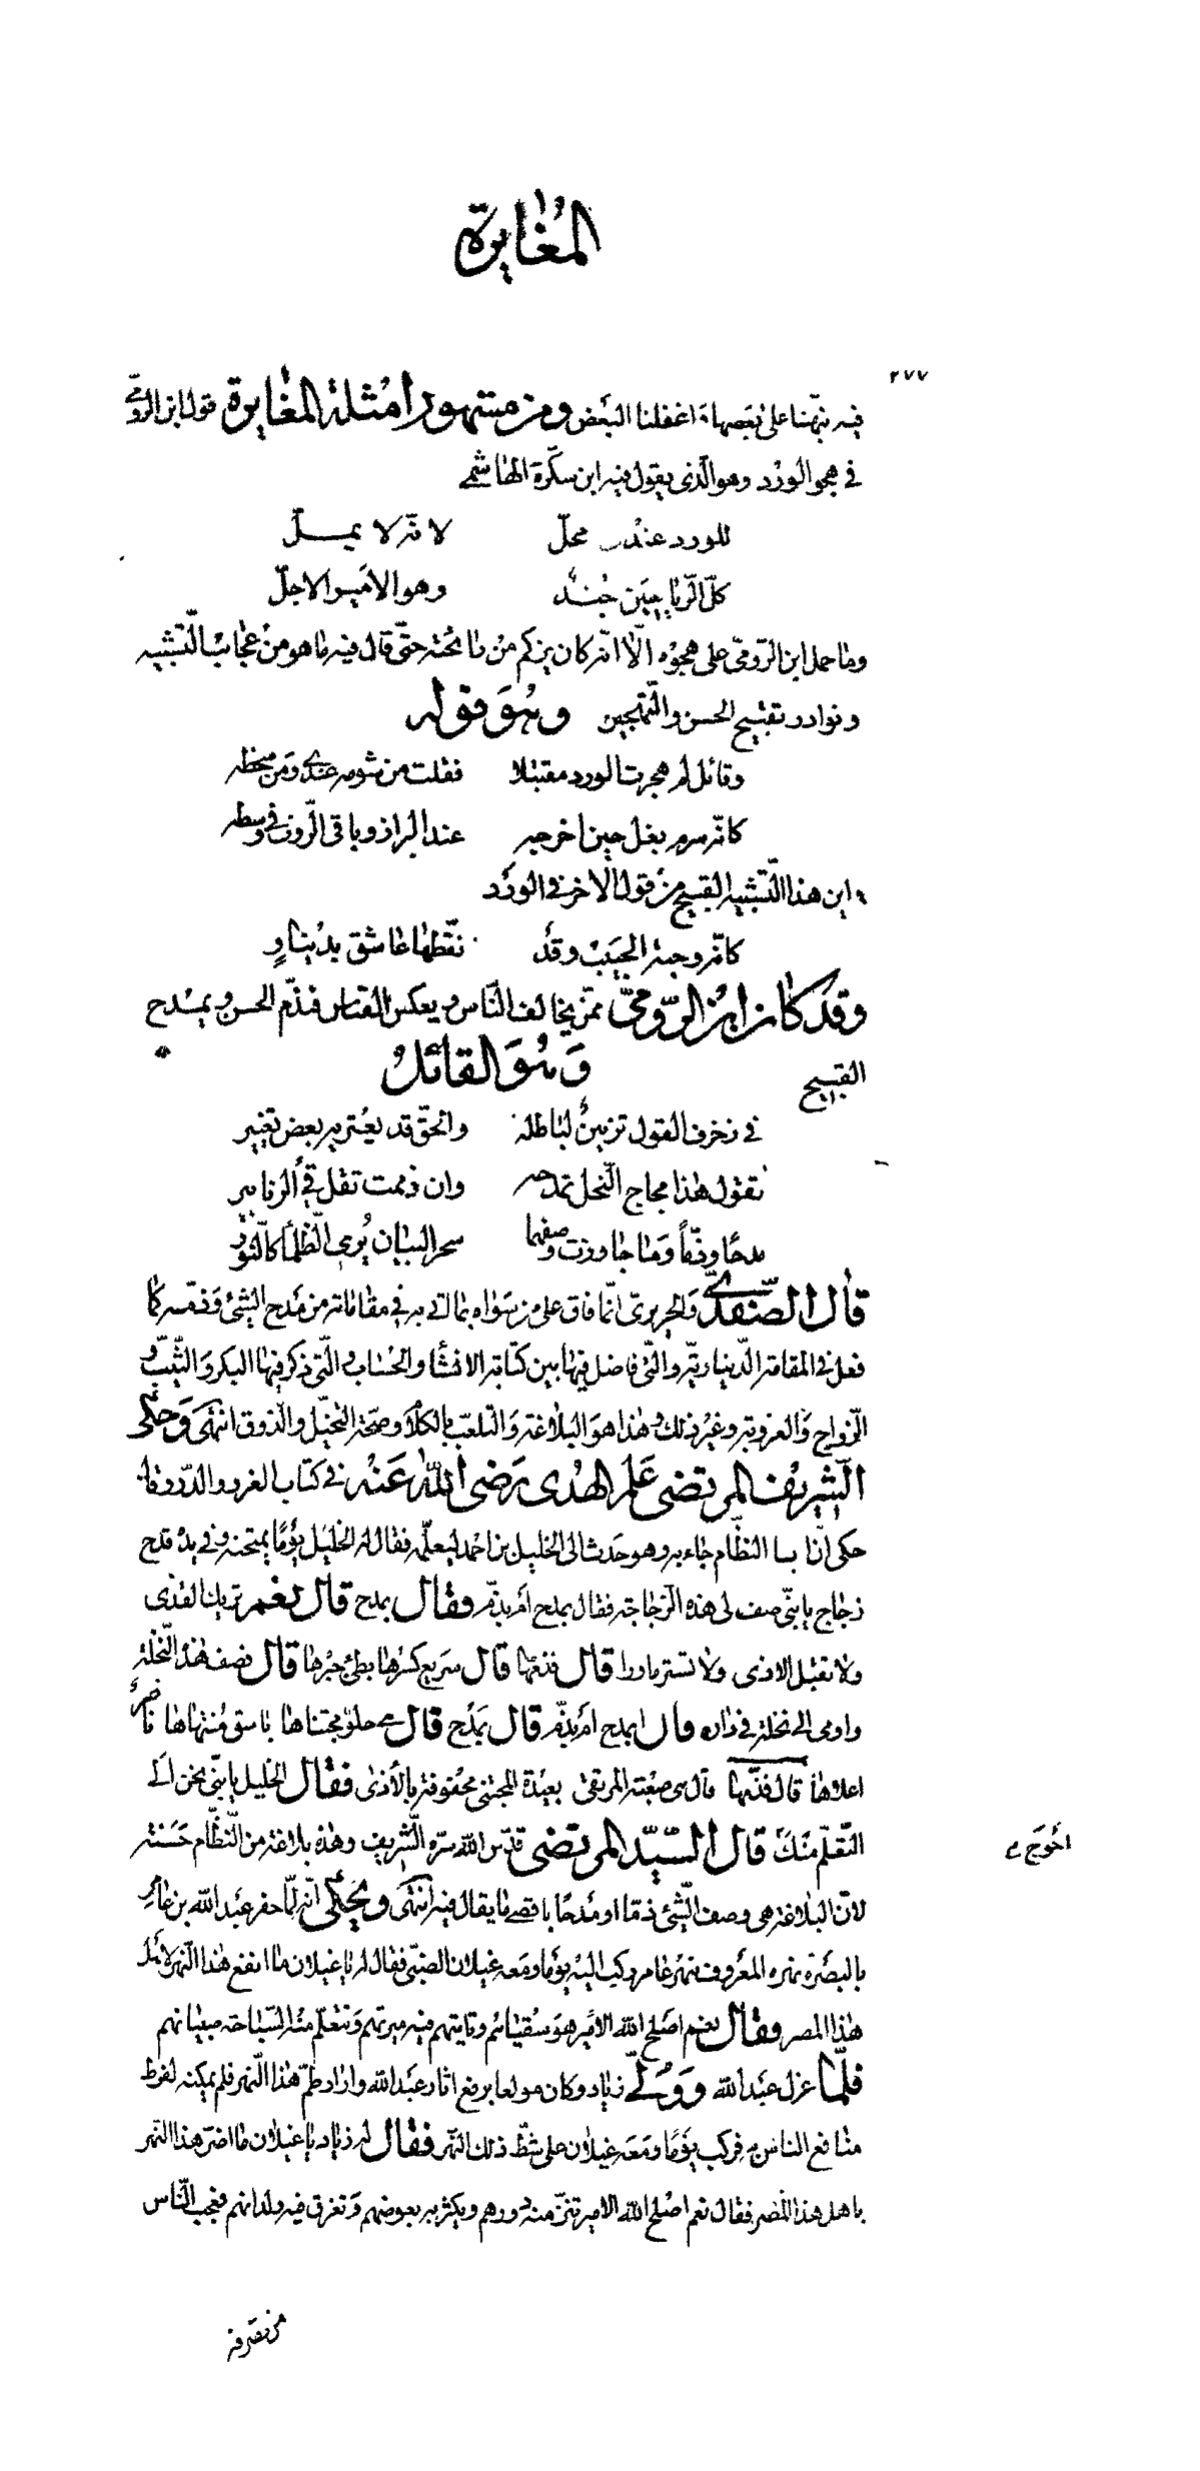 المغايرة
٢٧٧
فيه نبّهنا على بعضها واغفلنا البعض ومن مشهور امثلة المغايرة قول ابن الرومى
فى هجو الورد وهو الّذى يقول فيه ابن سكّرة الهاشمى
للورد عندى محلّ لانّه لا يملّ
كلّ الرّياحين جند وهو الامير الاجلّ
وما حمل ابن الرّومى على هجوه الّا انّه كان يزكم من رائحته حتّى قال فيه ما هو من عجائب التّشبيه
ونوادر تقبيح الحسن والتّهجين وهو قوله
وقائل لم هجرت الورد مقتبلا فقلت من شومه عندى ومن سخطه
كانّه سرم بغل حين اخرجه عند البراز وباقى الرّوث فى وسطه
واين هذا التّشبيه القبيح من قول الاخر فى الورد
كانّه وجنة الحبيب وقد نقّطها عاشق بدينار
وقد كان ابن الرّومىّ ممّن يخالف النّاس ويعكس القياس فيذمّ الحسن ويمدح
القبيح وهو القائل
فى زخرف القول تزيين لباطله والحقّ قد يعتريه بعض تغيير
تقول هذا مجاج النّحل تمدحه وان ذممت تقل قئ الزنابير
مدحا وذمّا وما جاوزت وصفهما سحر البيان يرى الظّلما كالنّور
قال الصّفدى والحريرى انّما فاق على من سواه بما اتى به فى مقاماته من مدح الشئ وذمّه كما
فعل فى المقامة الدّيناريّة والّتى فاضل فيها بين كتابة الانشأ والحساب والّتى ذكر فيها البكر والثّيّب و
الزواج والعزوبة وغير ذلك وهذا هو البلاغة والتلعّب بالكلام وصحّة التخيّل والذوق انتهى وحكى
الشّريف المرتضى علم الهدى رضى اللّه عنه فى كتاب الغرر والدّرر قال
حكى انّ ابا النظّام جاء به وهو حدث الى الخليل بن احمد ليعلّمه فقال له الخليل يوما يمتحنه وفى يده قدح
زجاج يا بنىّ صف لى هذه الزجاجة فقال بمدح ام بذمّ فقال بمدح قال نعم تريك القذى
ولا تقبل الاذى ولا تستر ما ورا قال فذمّها قال سريع كسرها بطئ جبرها قال فصف هذه النّخلة
واومى الى نخلة فى داره قال ابمدح ام بذمّ قال بمدح قال هى حلو مجتناها باسق منتهاها ناضر
اعلاها قال فذمّها قال هى صعبة المرتقى بعيدة المجتنى محفوفة بالأذى فقال الخليل يا بنىّ نحن الى
التّعلّم منك قال السّيّد المرتضى قدّس اللّه سرّه الشّريف وهذه بلاغة من النّظّام حسنة
احوج
لانّ البلاغة هى وصف الشّئ ذمّا او مدحا باقصى ما يقال فيه انتهى ويحكى انّه لمّا حفر عبد اللّه بن عامر
بالبصرة نهره المعروف بنهر عامر ركب اليه يوما ومعه غيلان الضبّى فقال له يا غيلان ما انفع هذا النّهر لاهل
هذا المصر فقال نعم اصلح اللّه الامير هو سقياهم وتاتيهم فيه ميرتهم وتتعلّم منه السّباحة صبيانهم
فلمّا عزل عبد اللّه وولّى زياد وكان مولعا برفع اثار عبد اللّه واراد طمّ هذا النّهر فلم يمكنه لفرط
منافع الناس به فركب يوما ومعه غيلان على شطّ ذلك النّهر فقال له زياد يا غيلان ما اضرّ هذا النّهر
باهل هذا المصر فقال نعم اصلح اللّه الامير تنزّ منه دورهم ويكثر به بعوضهم وتغرق فيه ولدانهم فعجب النّاس
من تصرفه